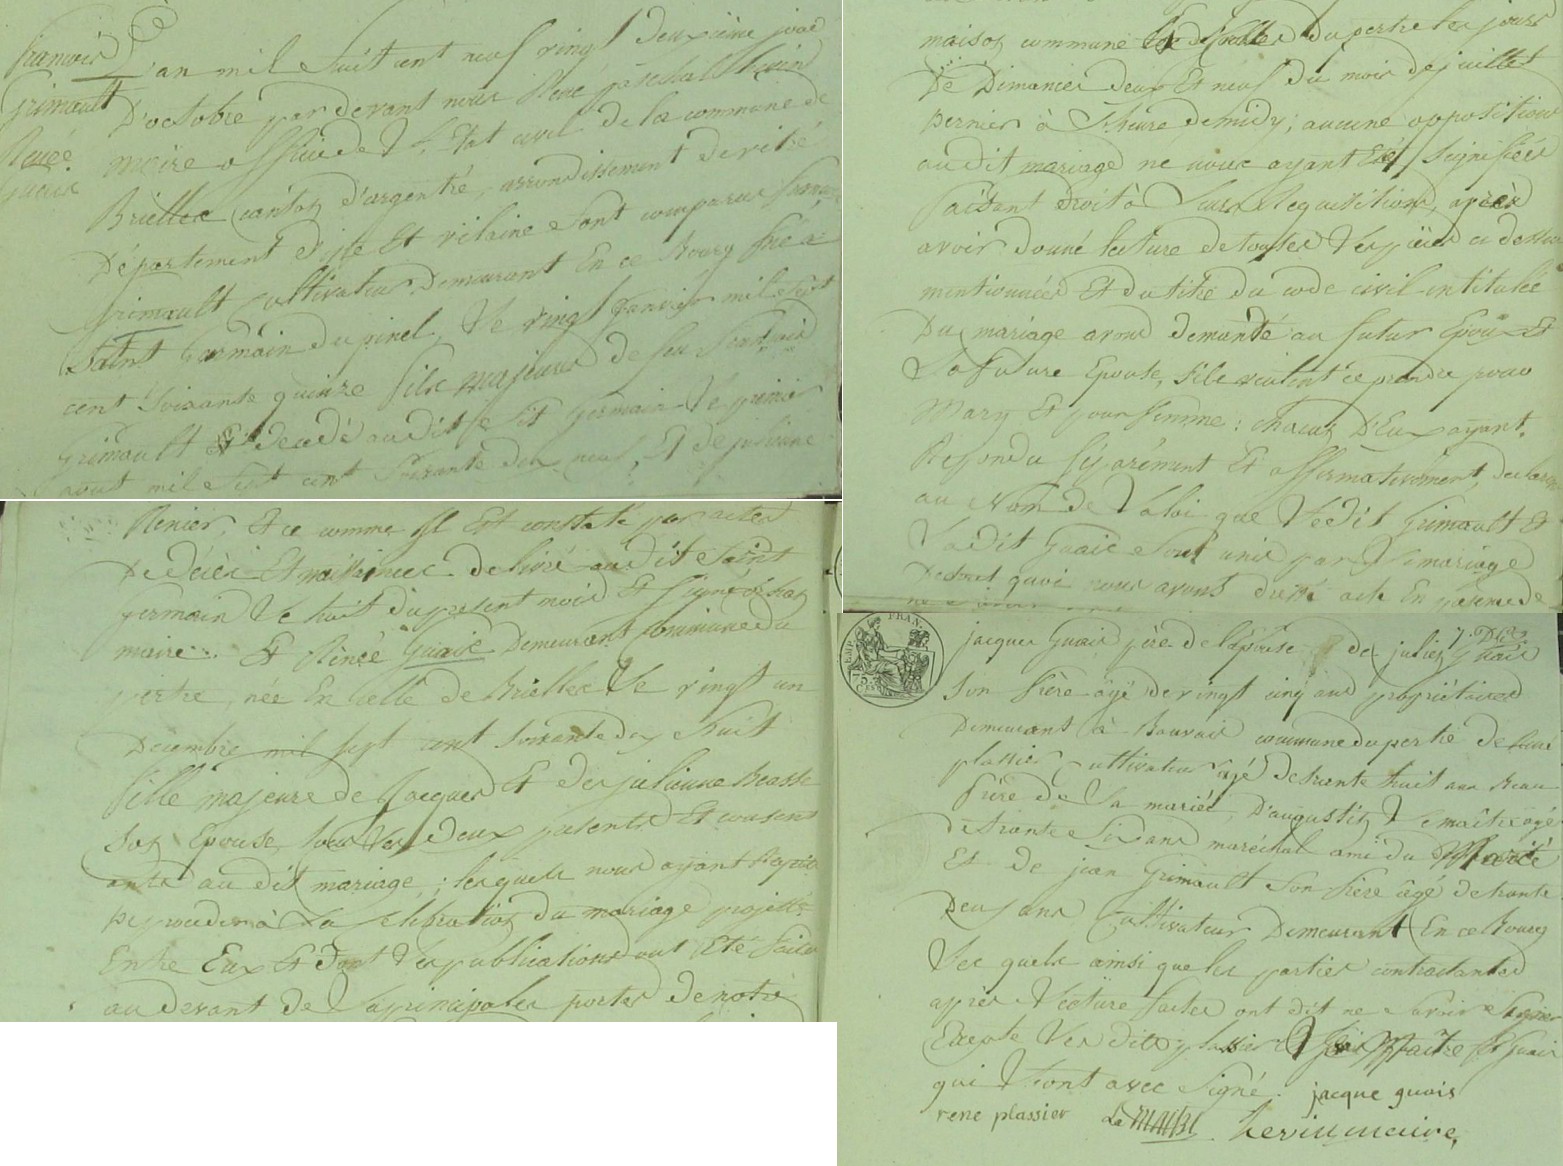 françois
Grimault
Renée
Guais
L'an mil huit cent neuf vingt deuxième jour
D'octobre par devant nous René paschal Levin
maire officier de l'Etat civil de la commune de
Brielles canton d'argentré, arrondissement de vitré
Département d'isle Et vilaine sont comparus françois
Grimault cultivateur Demeurant En ce Bourg né à
Saint Germain du pinel, le vingt janvier mil sept
cent soixante quinze fils majeur de feu François
Grimault Et décédé audit St Germain le premier
aout mil sept cent soixante dix neuf, Et de julienne
Renier, Et ce comme il Est constaté par actes
De Décès Et naissance délivré audit Saint
germain le huit du present mois Et signé
maire. Et Renée Guais Demeurant commune du
pertre, née En celle de Brielles le vingt un
Decembre mil sept cent soixante dix huit
fille majeure de Jacques Et de julienne Beasse
son Epouse, tous les deux présents Et consent
ants au dit mariage; lesquels nous ayant Requis
De procéder à La célébration du mariage projetté
Entre Eux Et Dont les publications ont Eté faites
au devant de La principales portes de notre
maison commune Et de celle Du pertre les jours
De Dimanches deux Et neuf du mois de juillet
Dernier à l'heure de midy; aucune opposition
audit mariage ne nous ayant Eté signifiée
faisant droit à Leurs Requisitions, après
avoir donné lecture de toutes les pièces ci dessus
mentionnées Et du titre du code civil intitulée
Du mariage avons demandé au futur Epoux Et
La future Epouse, s'ils veulent se prendre pour
Mary Et pour femme: chacun D'Eux ayant
Repondu séparément Et affirmativement, declarons
au Nom de La loi que Ledit Grimault Et
Ladit Guais sont unis par Le mariage
De tout quoi nous avons dressé acte En présence de
jacques Guais père de l'épouse de julien Guais
Son frère âgé de vingt cinq ans propriétaires
Demeurant à Bauvais commune du pertre de René
plassier cultivateur âgé de trente huit ans Beau
frère de La mariée, D'augustin Lemaître âgé
de trente six ans maréchal ami du Marié
Et de jean Grimault son frère âgé de trente
Deux ans cultivateur Demeurant En ce Bourg
Les quels ainsi que les parties contractantes
après Lecture faites ont dit ne savoir signer
Excepté Les dits plassier Lemaitre Et Guais
qui L'ont avec signé. jacque guais
rene plassier Le Maitre Levin maire,